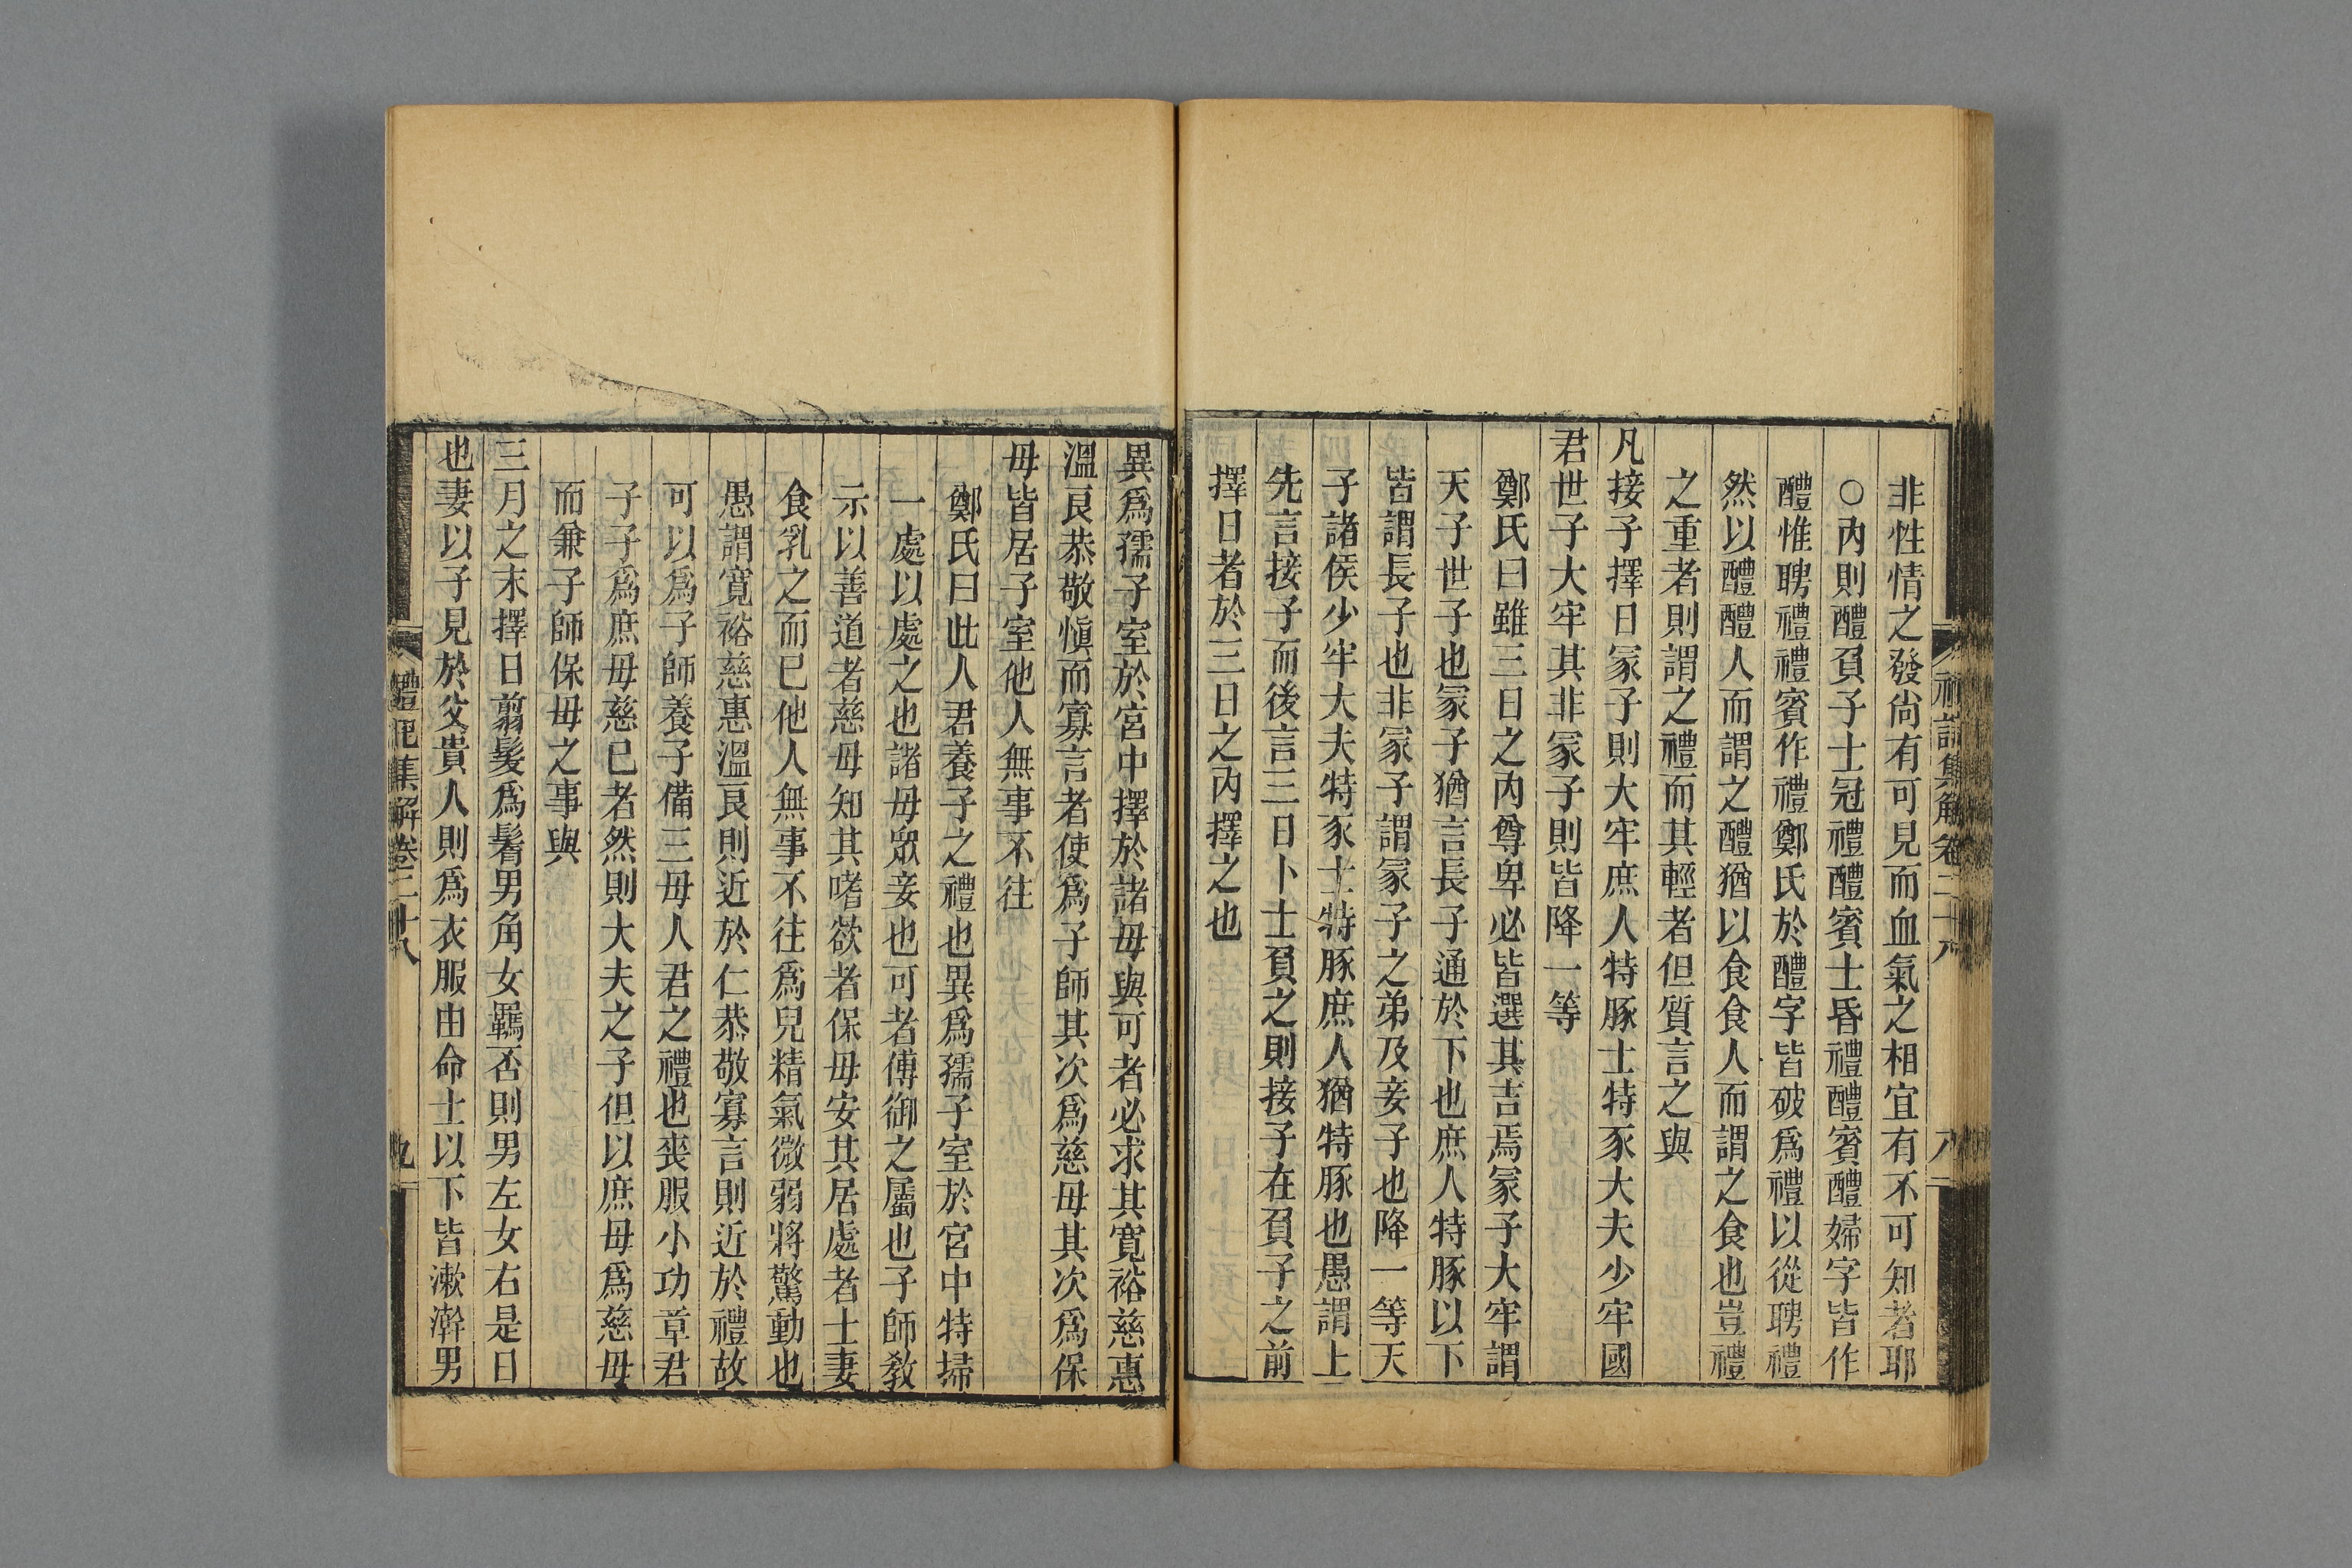 非性情之發尙有可見而血氣之相宜有不可知者耶
○內則醴負子士冠禮醴賓士昏禮醴賓醴婦字皆作
醴惟聘禮禮賓作禮鄭氏於醴字皆破爲禮以從聘禮
然以醴醴人而謂之醴猶以食食人而謂之食也豈禮
之重者則謂之禮而其輕者但質言之與
凡接子擇日冢子則大牢庶人特豚士特豕大夫少牢國
君世子大牢其非冢子則皆降一等
鄭氏曰雖三日之內尊卑必皆選其吉焉冢子大牢謂
天子世子也冢子猶言長子通於下也庶人特豚以下
皆謂長子也非冢子謂冢子之弟及妾子也降一等天
子諸侯少牢大夫特豕士特豚庶人猶特豚也愚謂上
先言接子而後言三日卜士負之則接子在負子之前
擇日者於三日之內擇之也
異爲孺子室於宮中擇於諸母與可者必求其寬裕慈惠
溫良恭敬愼而寡言者使爲子師其次爲慈母其次爲保
母皆居子室他人無事不往
鄭氏曰此人君養子之禮也異爲孺子室於宮中特掃
一處以處之也諸母眾妾也可者傅御之屬也子師敎
示以善道者慈母知其嗜欲者保母安其居處者士妻
食乳之而已他人無事不往爲兒精氣微弱將驚動也
愚謂寬裕慈惠溫良則近於仁恭敬寡言則近於禮故
可以爲子師養子備三母人君之禮也喪服小功章君
子子爲庶母慈已者然則大夫之子但以庶母爲慈母
而兼子師保母之事與
三月之末擇日翦髮爲鬌男角女羈否則男左女右是日
也妻以子見於父貴人則爲衣服由命士以下皆漱澣男
禮記集解卷二十八
九